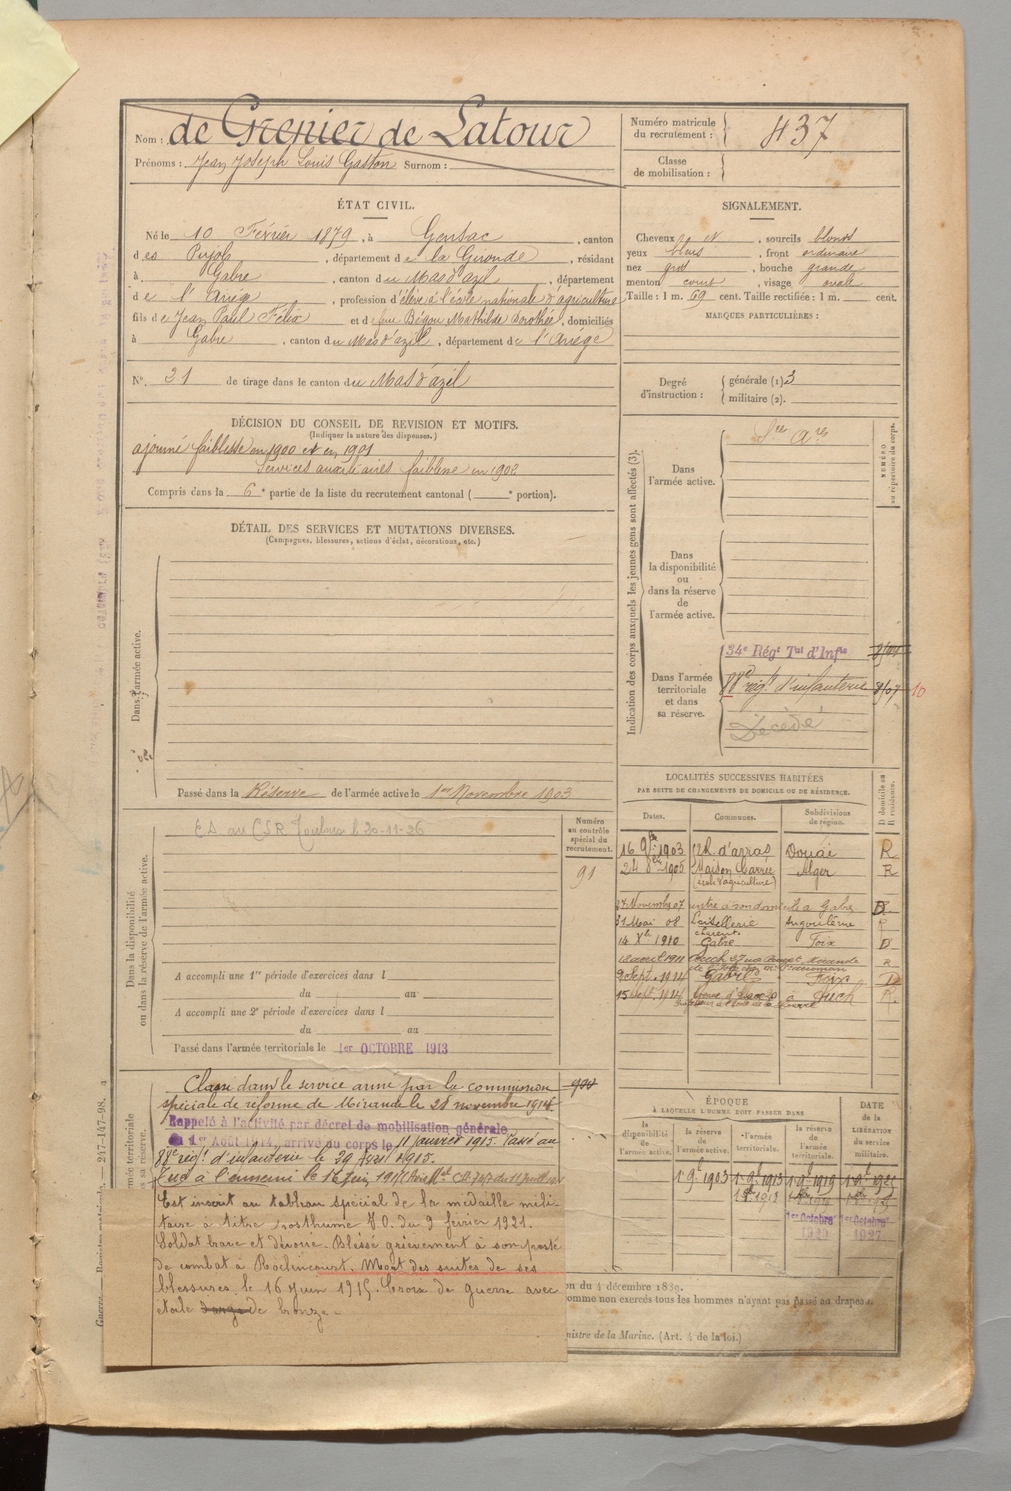 Nom : de Grenier de Latour
Prénoms : Jean Joseph Louis Gaston Surnom :
Numéro matricule du recrutement : 437
Classe de mobilisation :
ÉTAT CIVIL.
Né le 10 Février 1879, à Gensac, canton
des Pujols, département de la Gironde, résidant
à Gabre, canton du Mas d'azil, département
de l'Ariège, profession d'élève à l'école nationale d'agriculture
fils de Jean Paul Félix et de feue Bégou Mathilde Dorothée, domiciliés
à Gabre, canton du Mas d'azil, département de l'Ariège
N°. 31 de tirage dans le canton du Mas d'azil
SIGNALEMENT.
Cheveux et, sourcils blonds
yeux bleus, front ordinaire
nez gros, bouche grande
menton court, visage ovale
Taille : 1 m. 69 cent. Taille rectifiée : 1 m. cent.
MARQUES PARTICULIÈRES :
Degré d'instruction : générale (1) 3
militaire (2).
DÉCISION DU CONSEIL DE REVISION ET MOTIFS.
(Indiquer la nature des dispenses.)
ajourné faiblesse en 1900 et en 1901
Services auxiliaires faiblesse en 1902
Compris dans la 6e partie de la liste du recrutement cantonal ( e portion).
DÉTAIL DES SERVICES ET MUTATIONS DIVERSES.
(Campagnes, blessures, actions d'éclat, décorations, etc.)
Dans l'armée active.
Passé dans la Réserve de l'armée active le 1er Novembre 1903
Indication des corps auxquels les jeunes gens sont affectés (3).
NUMÉRO au répertoire du corps.
Dans
l'armée active.
Dans
la disponibilité
ou
dans la réserve
de
l'armée active.
34e Régt Tal d'Infie
Dans l'armée
territoriale
et dans
sa réserve.
88e régt d'infanterie 8/07 10
Décédé
Dans la disponibilité
ou dans la réserve de l'armée active.
Numéro
au contrôle
spécial du
recrutement.
91
A accompli une 1re période d'exercices dans l
du au
A accompli une 2e période d'exercices dans l
du au
Passé dans l'armée territoriale le 1er OCTOBRE 1913
LOCALITÉS SUCCESSIVES HABITÉES
PAR SUITE DE CHANGEMENTS DE DOMICILE OU DE RÉSIDENCE.
D domicile ou
R résidence.
Dates. Communes. Subdivisions de région.
16 9bre 1903 d'arras Douai R
24 1905 Maison Carrée Alger R
(école d'agriculture)
27 Novembre 07 rentre à son domicile à Gabre D
31 Mai 08 Angoulême R
14 Xbre 1910 Gabre Foix D
12 avril 1911 Auch Mirande R
9 Sept. 1914 Gabre Foix D
15 sept. 1914 à Auch R
Classé dans le service armé par la commission
spéciale de réforme de Mirande le 28 novembre 1914.
Rappelé à l'activité par décret de mobilisation générale
du 1er Août 1914, arrivé au corps le 11 Janvier 1915. Passé au
88e régt d'infanterie le
Tué à l'ennemi le 16 Juin 1915
Est inscrit au tableau spécial de la médaille mili-
taire à titre posthume J.O. du 9 février 1921.
Soldat brave et dévoué. Blessé grièvement à son poste
de combat à Roclincourt. Mort des suites de ses
blessures le 16 juin 1915. Croix de guerre avec
étoile de bronze.
ÉPOQUE
À LAQUELLE L'HOMME DOIT PASSER DANS
DATE
de la
LIBÉRATION
du service
militaire.
la disponibilité de l'armée active.
la réserve de l'armée active.
l'armée territoriale.
la réserve de l'armée territoriale.
1 9e 1903 1 9e 1913 1 9e 1919
1er Octobre 1er Octobre
1920 1927
on du 4 décembre 1889.
omme non exercés tous les hommes n'ayant pas passé au drapeau
nistre de la Marine. (Art. 4 de la loi.)